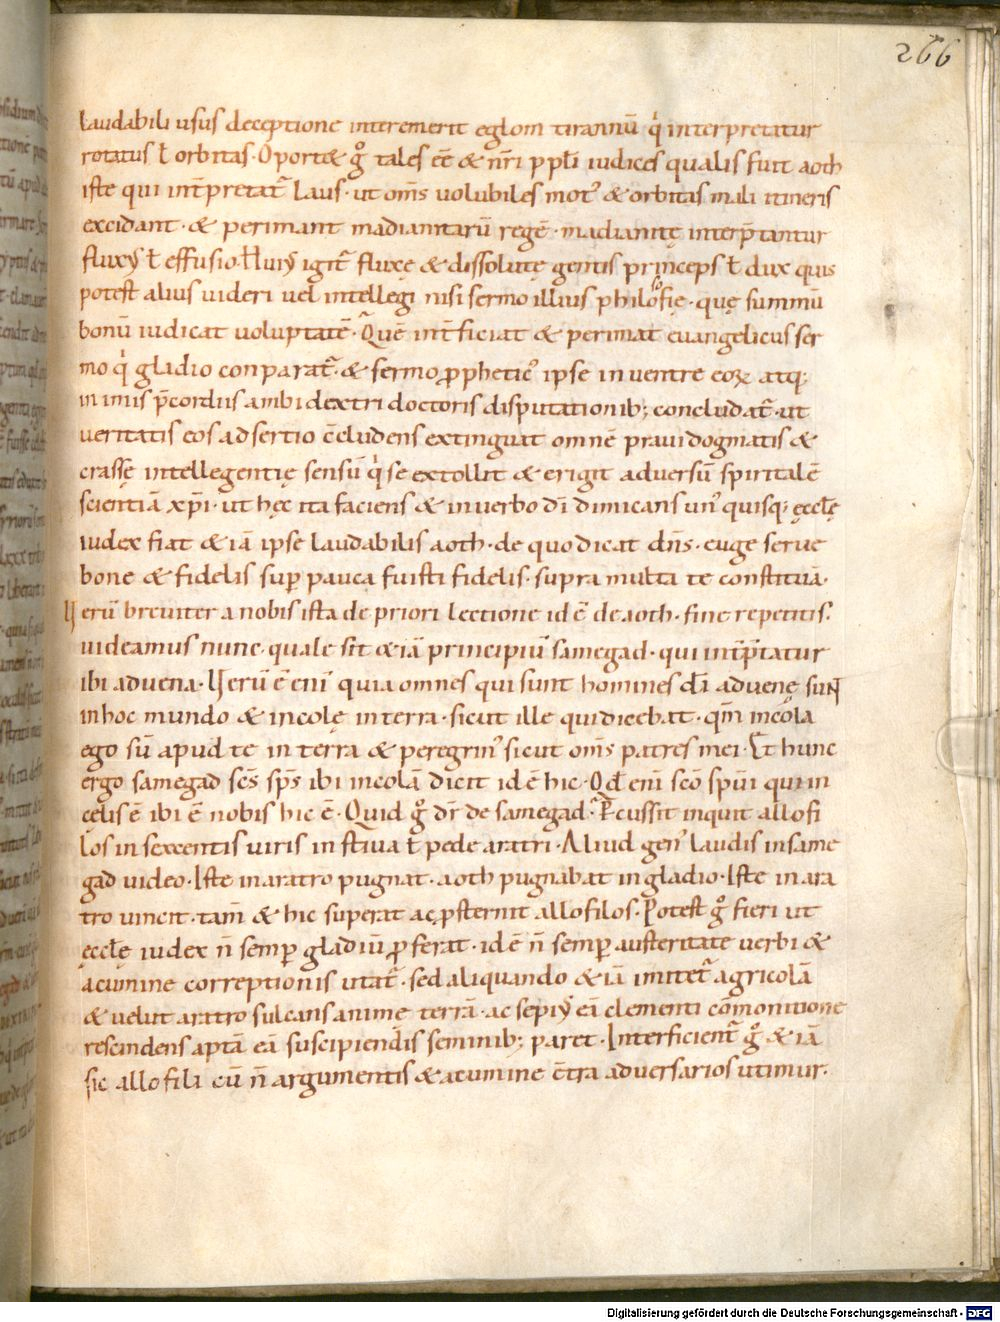 266
laudabili usus deceptione interemerit eglom tirannū q̇ interpretatur
rotatus ł orbitas. Oport& g̊ tales eē & nr̄i ppl̄i iudices qualis fuit aoth
iste qui int̄pretat̄ laus. ut om̄s uolubiles mot᾽ & orbitas mali itineris
excidant. & perimant madianitarū regē. madianitę interp̄tantur
fluxꝰ ł effusio. Huiꝰ igit̄ fluxę & dissolutę gentis princeps ł dux quis
potest alius uideri uel intellegi nisi sermo illius philosofię. quę summū
bonū iudicat uoluptatē. Quē int̄ficiat & perimat euangelicus ser
mo q̇ gladio conparat̄. & sermo ꝓphetic᾽ ipse in uentre eoꝝ atq;
in imis p̄cordiis ambidextri doctoris disputationib; concludat̄. ut
ueritatis eos adsertio c̄cludens extinguat omnē praui dogmatis &
crassę intellegentię sensū q̇ se extollit & erigit aduersū spiritalē
scientiā xp̄i. ut hęc ita faciens & in uerbo dī dimicans un᾽ quisq; ęccl̄ę
iudex fiat & iā ipse laudabilis aoth. de quo dicat dn̄s. euge serue
bone & fidelis sup̄ pauca fuisti fidelis. supra multa te constituā.
Uerū breuiter a nobis ista de priori lectione id ē de aoth. sint repetitis.
uideamus nunc. quale sit & iā principiū samegad. qui int̄p̄tatur
ibi aduena. Uerū ē eni᾽ quia omnes qui sunt homines dī aduenę sunt
in hoc mundo & incolę in terra. sicut ille qui dicebat. qm̄ incola
ego sū apud te in terra & peregrin᾽ sicut om̄s patres mei. Et hunc
ergo samegad sc̄s sp̄s ibi incolā dicit id ē hic. Qđ eni᾽ sc̄o sp̄ui qui in
cęlis ē ibi ē nobis hic ē. Quid g̊ dr̄ de samegad? Percussit inquit allofi
los in sexcentis uiris in stiua ł pede aratri. Aliud gen᾽ laudis in same
gad uideo. Iste in aratro pugnat. aoth pugnabat in gladio. Iste in ara
tro uincit. tam̄ & hic superat ac ꝓsternit allofilos. Potest g̊ fieri ut
ęccl̄ę iudex n̄ semp̄ gladiū ꝓferat. id ē n̄ semp̄ austeritate uerbi &
acumine correptionis utat̄. sed aliquando & iā imitet̄ agricolā
& uelut aratro sulcans animę terrā. ac sepiꝰ eā clementi cōmonitione
rescindens aptā eā suscipiendis seminib; paret. Interficient̄ g̊ & iā
sic allofili cū n̄ argumentis & acumine c̄tra aduersarios utimur.
Digitalisierung gefördert durch die Deutsche Forschungsgemeinschaft - DFG